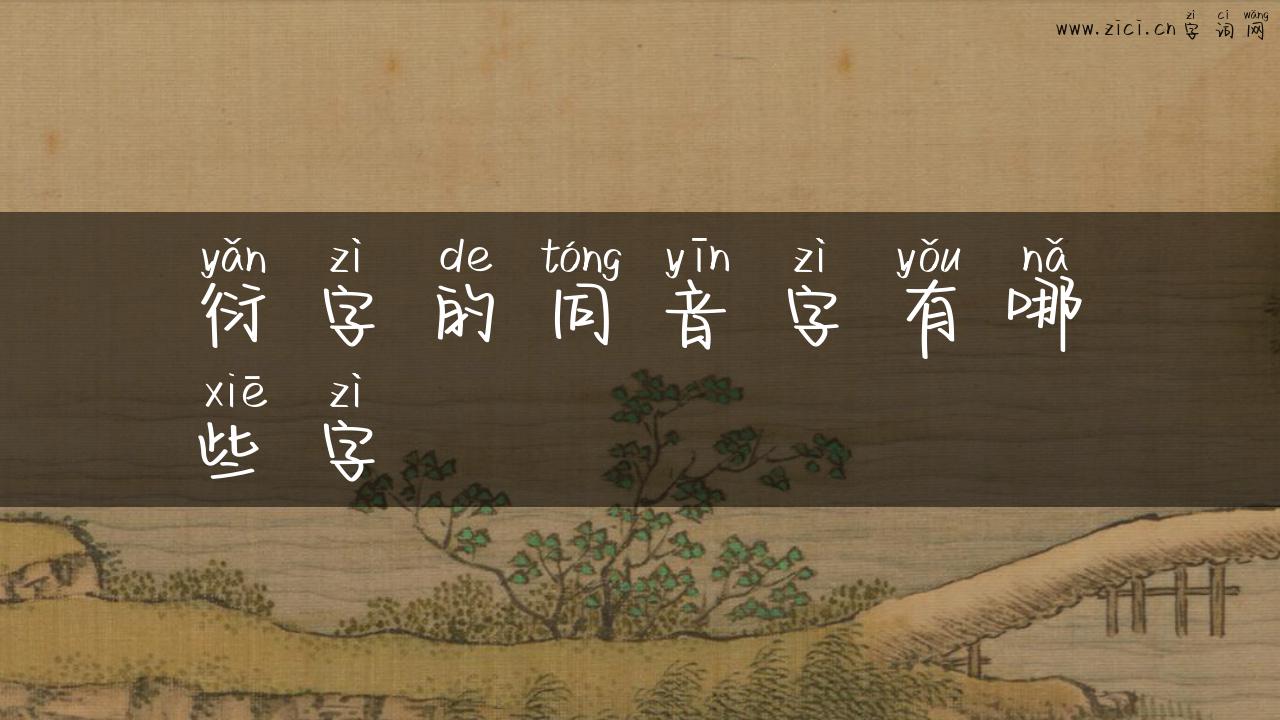 zì cí wǎng
www.zici.cn 字词网
yǎn zì de tóng yīn zì yǒu nǎ
衍字的同音字有哪
xiē zì
些字